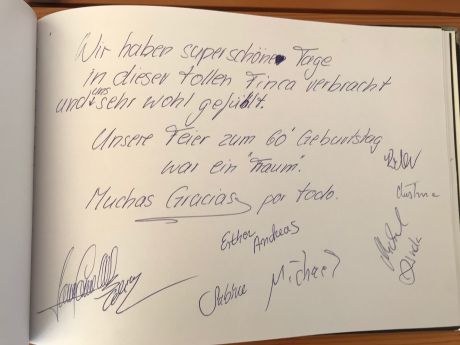 Wir haben superschöne Tage
in dieser tollen Finca verbracht
und uns sehr wohl gefühlt.
Unsere Feier zum 60 Geburtstag
war ein "Traum".
Muchas Gracias por todo.
Esther Andreas
Sabine Michael
Christina
Michael